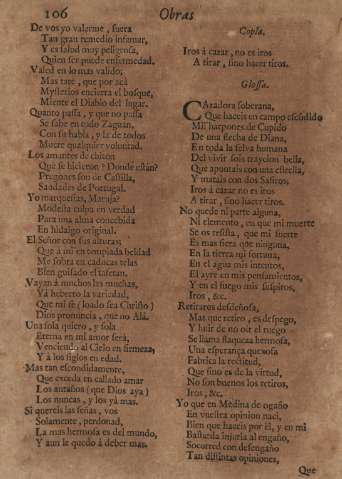 106 Obras
De vos yo valerme, fuera
Tan gran remedio infamar,
Y es salud muy peligrosa,
Quien ser puede enfermedad.
Valed en lo mas valido;
Mas tate, que por acà
Mysterios encierra el bosque,
Miente el Diablo del lugar.
Quanto passa, y que no passa
Se sabe en todo Zaguàn,
Con su habla, y la de todos
Muere qualquier voluntad.
Los amantes de chiton
Què se hicieron? Donde estàn?
Pregones son de Castilla,
Saudades de Portugal.
Yo marquesias, Maraja?
Modesta culpa en verdad
Para una alma concebida
En hidalgo original.
El Señor con sus alturas;
Que à mi en templada beldad
Me sobra en cadocas telas
Bien guisado el tafetan.
Vayan à muchos las muchas,
Yà heberto la variedad,
Que mi fè (loado sea Christo)
Dios pronuncia, que no Alà.
Una sola quiero, y sola
Eterna en mi amor serà,
Venciendo al Cielo en firmeza,
Y à los siglos en edad.
Mas tan escondidamente,
Que exceda en callado amar
Los antaños (que Dios aya)
Los nuncas, y los yà mas.
Si quereis las señas, vos
Solamente, perdonad,
La mas hermosa es del mundo,
Y aun le quedo à deber mas.
Copla.
Iros à cazar, no es iros
A tirar, sino hacer tiros.
Glossa.
CAzadora soberana,
Que haceis en campo escondido
Mil harpones de Cupido
De una flecha de Diana,
En toda la selva humana
Del vivir sois traycion bella,
Que apuntais con una estrella,
Y matais con dos Safiros;
Iros à cazar no es iros
A tirar, sino hacer tiros.
No quede ni parte alguna,
Ni elemento, en que mi muerte
Se os resista, que mi suerte
Es mas fiera que ninguna,
En la tierra mi fortuna,
En el agua mis intentos,
El ayre en mis pensamientos,
Y en el fuego mis suspiros,
Iros, &c.
Retirares desdeñosa,
Mas que retiro, es despego,
Y huir de no oìr el ruego
Se llama flaqueza hermosa,
Una esperança quexosa
Fabrica la rectitud,
Que sino es de la virtud,
No son buenos los retiros,
Iros, &c.
Yo que en Medina de ogaño
En vuestra opinion nacì,
Bien que haceis por èl, y en mi
Bastarda injuria al engaño,
Socorred con desengaño
Tan distintas opiniones,
Que